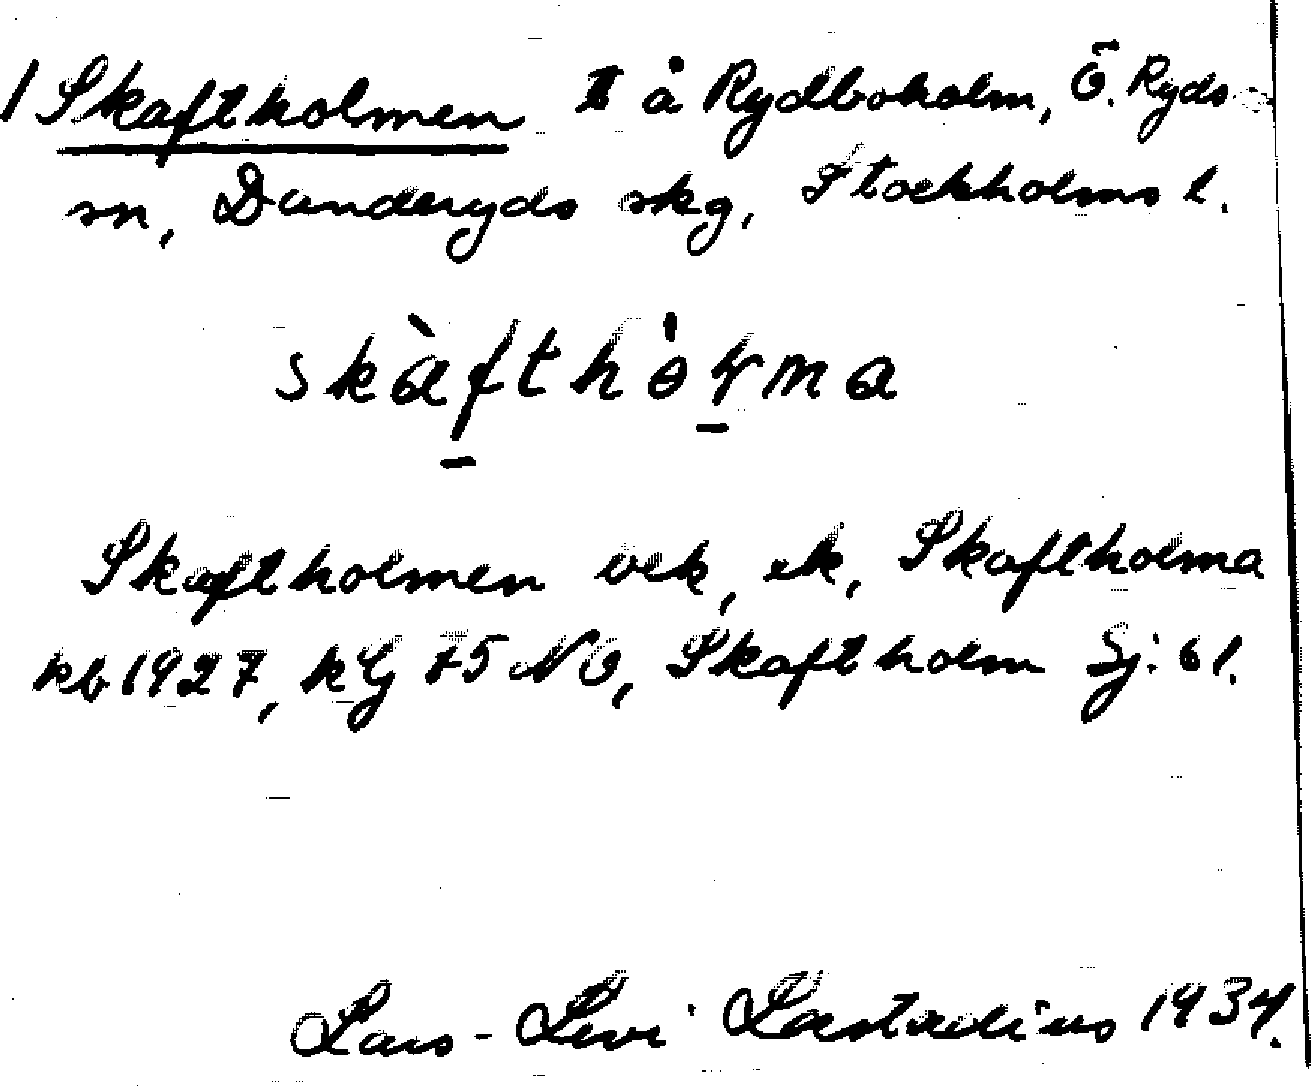 1 Skaftholmen å Rydboholm, Ö. Ryds
sn, Danderyds skg, Stockholms l.
skàfthòɽma
Skaftholmen vek, ek, Skaftholma
kb 1927, kG 75 NO, Skaftholm Sj: 61.
Lars-Levi Læstadius 1934.